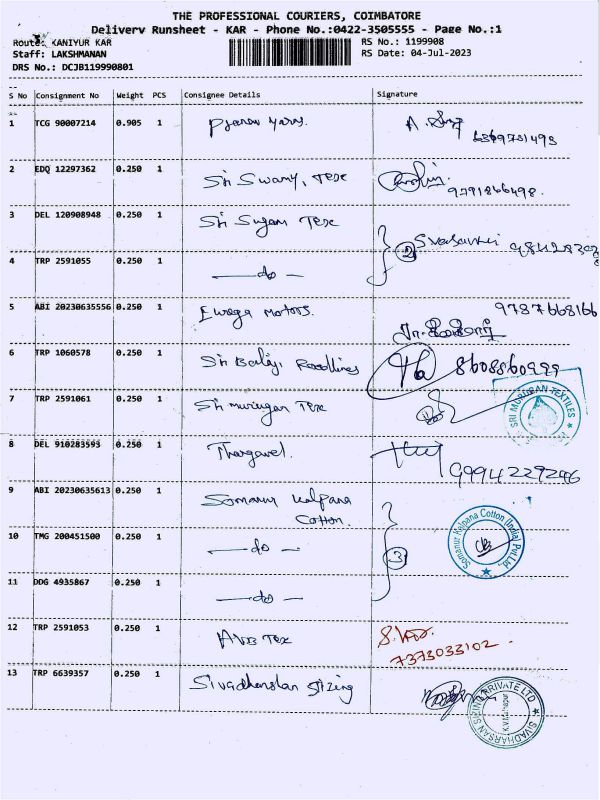 THE PROFESSIONAL COURIERS, COIMBATORE
Delivery Runsheet - KAR - Phone No.:0422-3505555 - Page No.:1
Route: KANIYUR KAR
RS No.: 1199908
Staff: LAKSHMANAN
RS Date: 04-Jul-2023
DRS No.: DCJB119990801
S No Consignment No Weight PCS Consignee Details Signature
1 TCG 90007214 0.905 1
2 EDQ 12297362 0.250 1 Sri Swamy Tex
9791866498
3 DEL 120908948 0.250 1 Sri Sugam Tex
2
4 TRP 2591055 0.250 1 — do —
5 ABI 20230635556 0.250 1 Motors. 9787668166
6 TRP 1060578 0.250 1 Sri Balaji Roadlines 8608860999
7 TRP 2591061 0.250 1 Sri murugan Tex
SRI MURUGAN TEXTILES
8 DEL 910283593 0.250 1 Thangavel. 9994229296
9 ABI 20230635613 0.250 1 Somanur Kalpana
Cotton.
10 TMG 200451500 0.250 1 — do — 3
Somanur Kalpana Cotton (India) Pvt. Ltd.
11 DDG 4935867 0.250 1 — do —
12 TRP 2591053 0.250 1 AVB Tex
7373033102.
13 TRP 6639357 0.250 1 Sivadharshan Sizing
SIVADHARSAN SIZING PRIVATE LTD